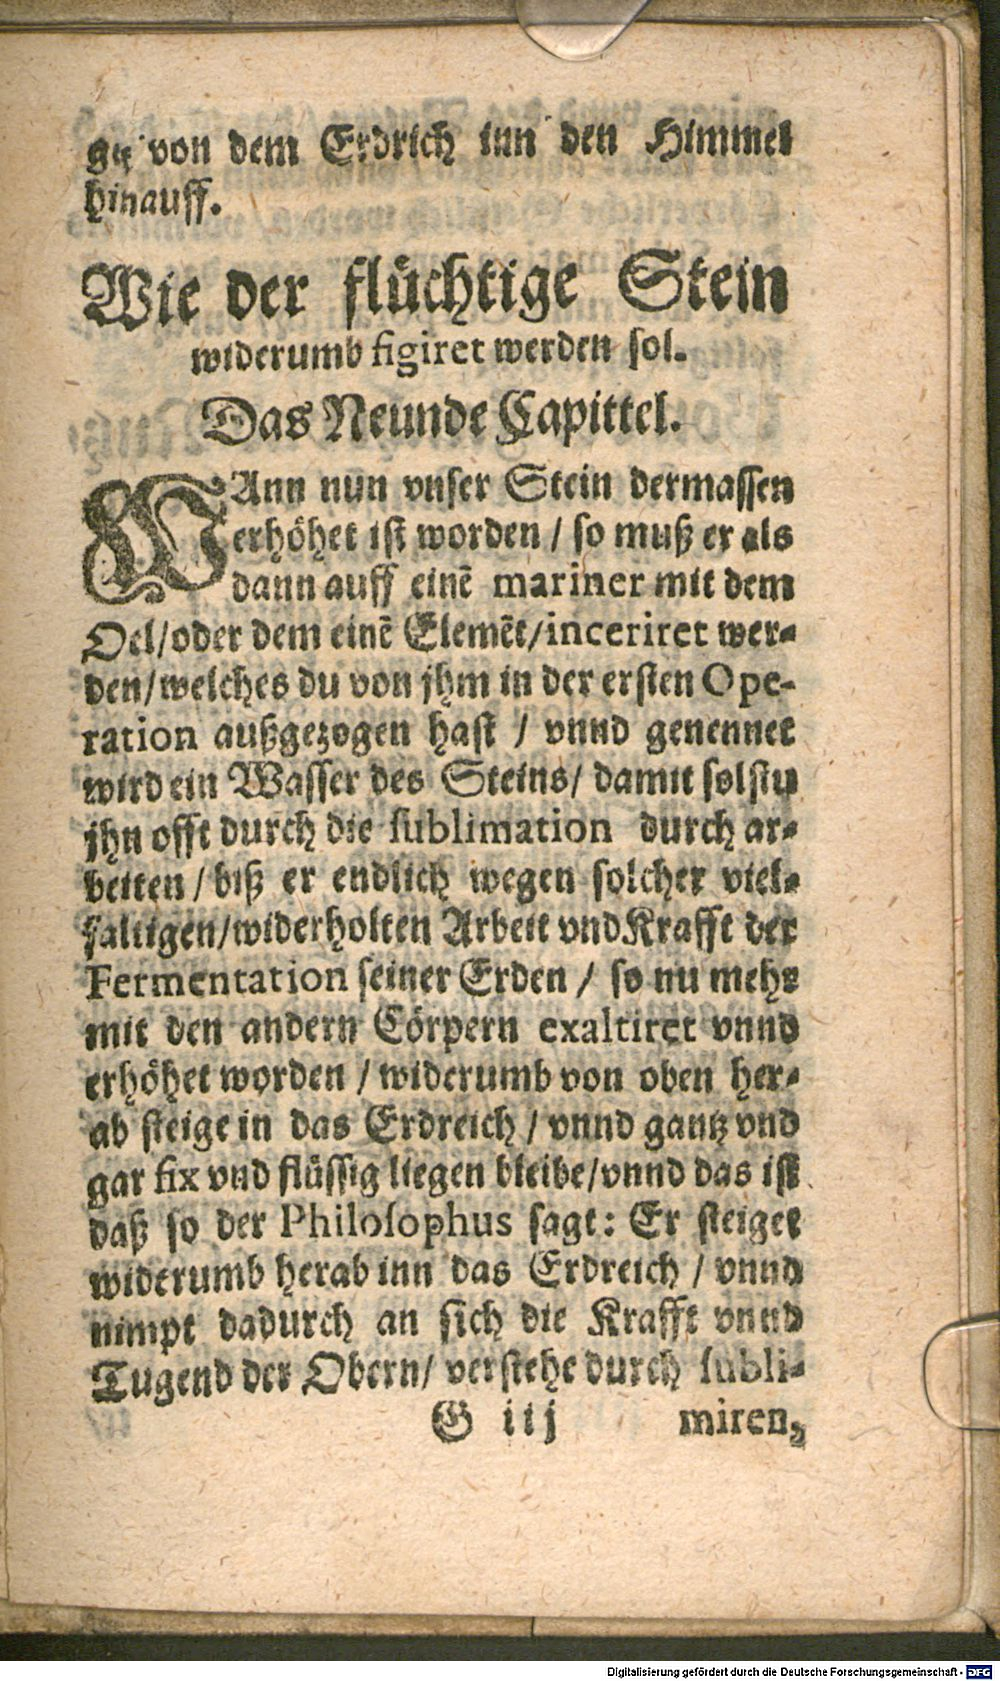 ge von dem Erdrich inn den Himmel
hinauff.
Wie der flüchtige Stein
widerumb figiret werden sol.
Das Neunde Capittel.
WAnn nun vnser Stein dermassen
erhöhet ist worden / so muß er als
dann auff einē mariner mit dem
Oel/oder dem einē Elemēt/inceriret wer-
den/welches du von jhm in der ersten Ope-
ration außgezogen hast / vnnd genennet
wird ein Wasser des Steins/ damit solstu
jhn offt durch die sublimation durch ar-
beiten / biß er endlich wegen solcher viel-
faltigen/widerholten Arbeit vnd Krafft der
Fermentation seiner Erden / so nu mehr
mit den andern Cörpern exaltiret vnnd
erhöhet worden / widerumb von oben her-
ab steige in das Erdreich / vnnd gantz vnd
gar fix vnd flüssig liegen bleibe/vnnd das ist
daß so der Philosophus sagt: Er steiget
widerumb herab inn das Erdreich / vnnd
nimpt dadurch an sich die Krafft vnnd
Tugend der Obern/ verstehe durch subli-
G iij miren,
Digitalisierung gefördert durch die Deutsche Forschungsgemeinschaft - DFG